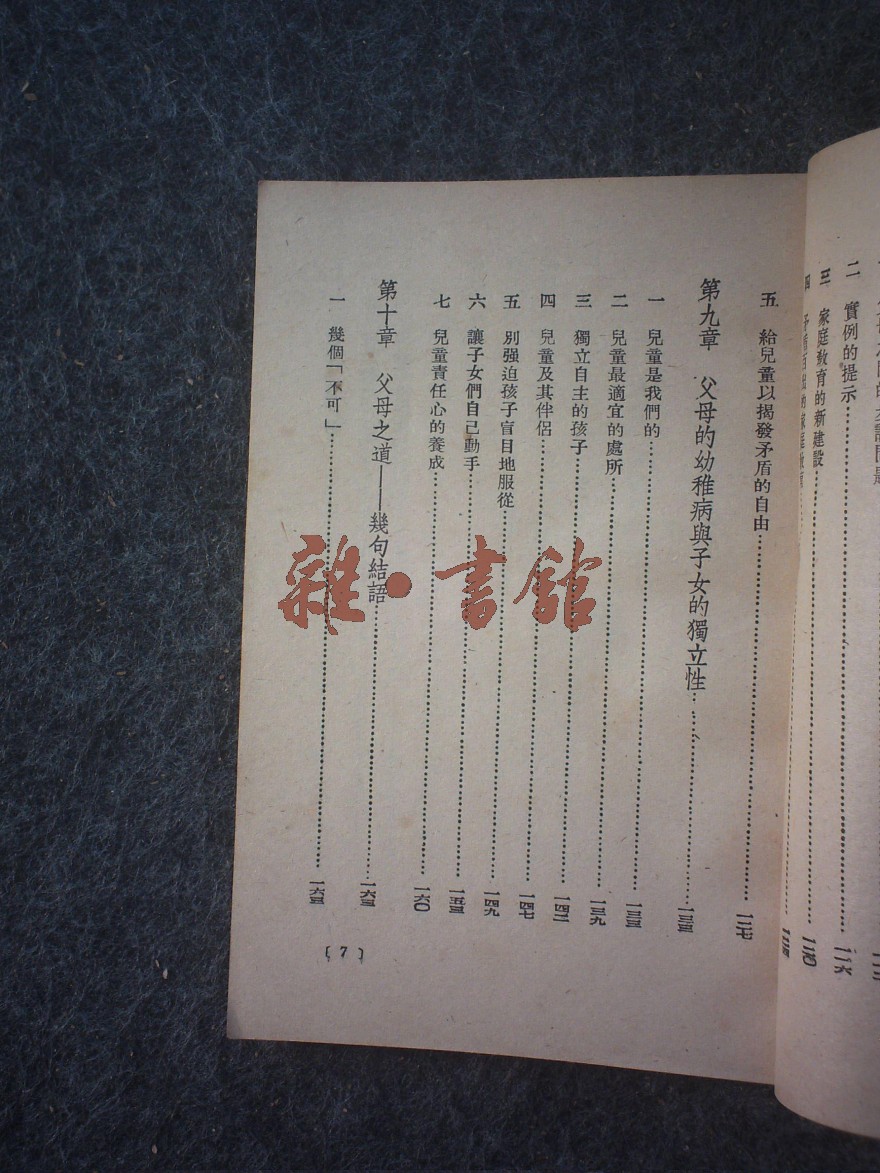 二 實例的提示 一一六
三 家庭教育的新建設 一二〇
五 給兒童以揭發矛盾的自由 一二七
第九章 父母的幼稚病與子女的獨立性 一三三
一 兒童是我們的 一三三
二 兒童最適宜的處所 一三九
三 獨立自主的孩子 一四二
四 兒童及其伴侶 一四七
五 別强迫孩子盲目地服從 一四九
六 讓子女們自己動手 一五三
七 兒童責任心的養成 一六〇
第十章 父母之道——幾句結語 一六三
一 幾個「不可」 一六三
〔7〕
雜·書館